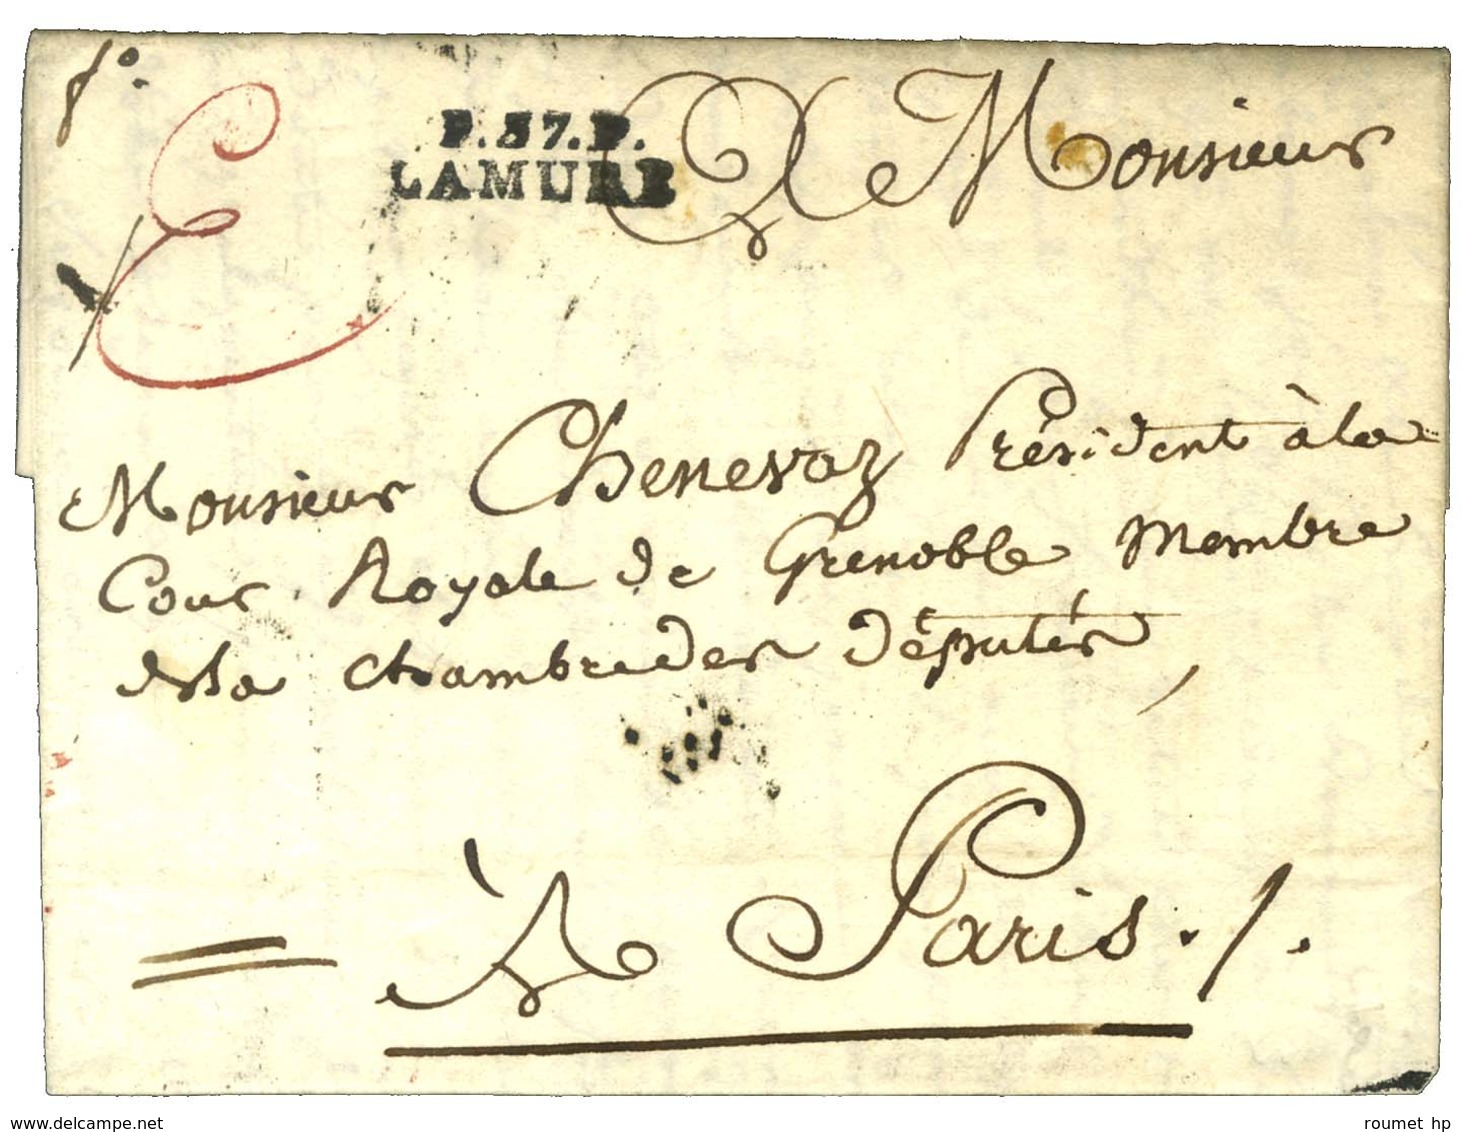 fo.
E
P.37.P.
LAMURE
A Monsieur
Monsieur Chenevaz Président à la
Cour Royale de Grenoble Membre
de la chambre des députés,
À Paris./.
delcampe.net
roumet_hp